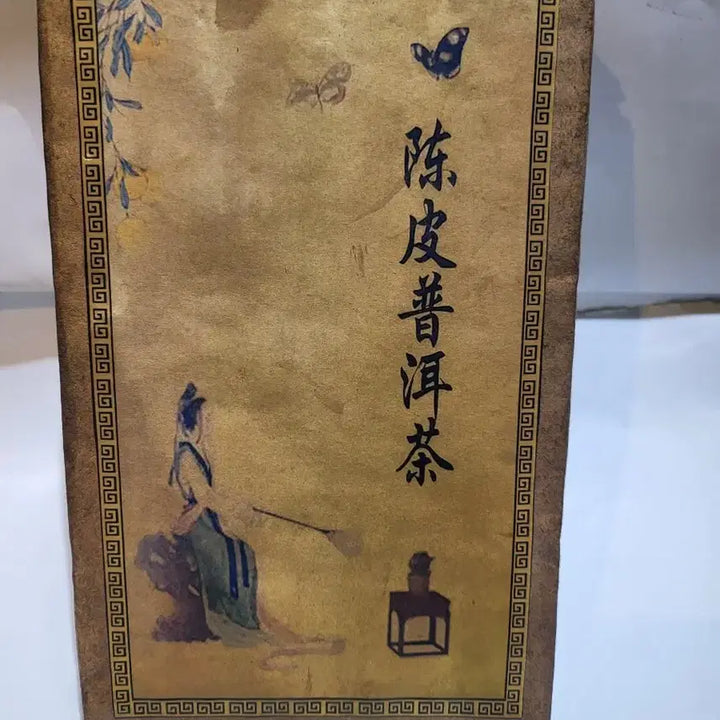 陈皮普洱茶